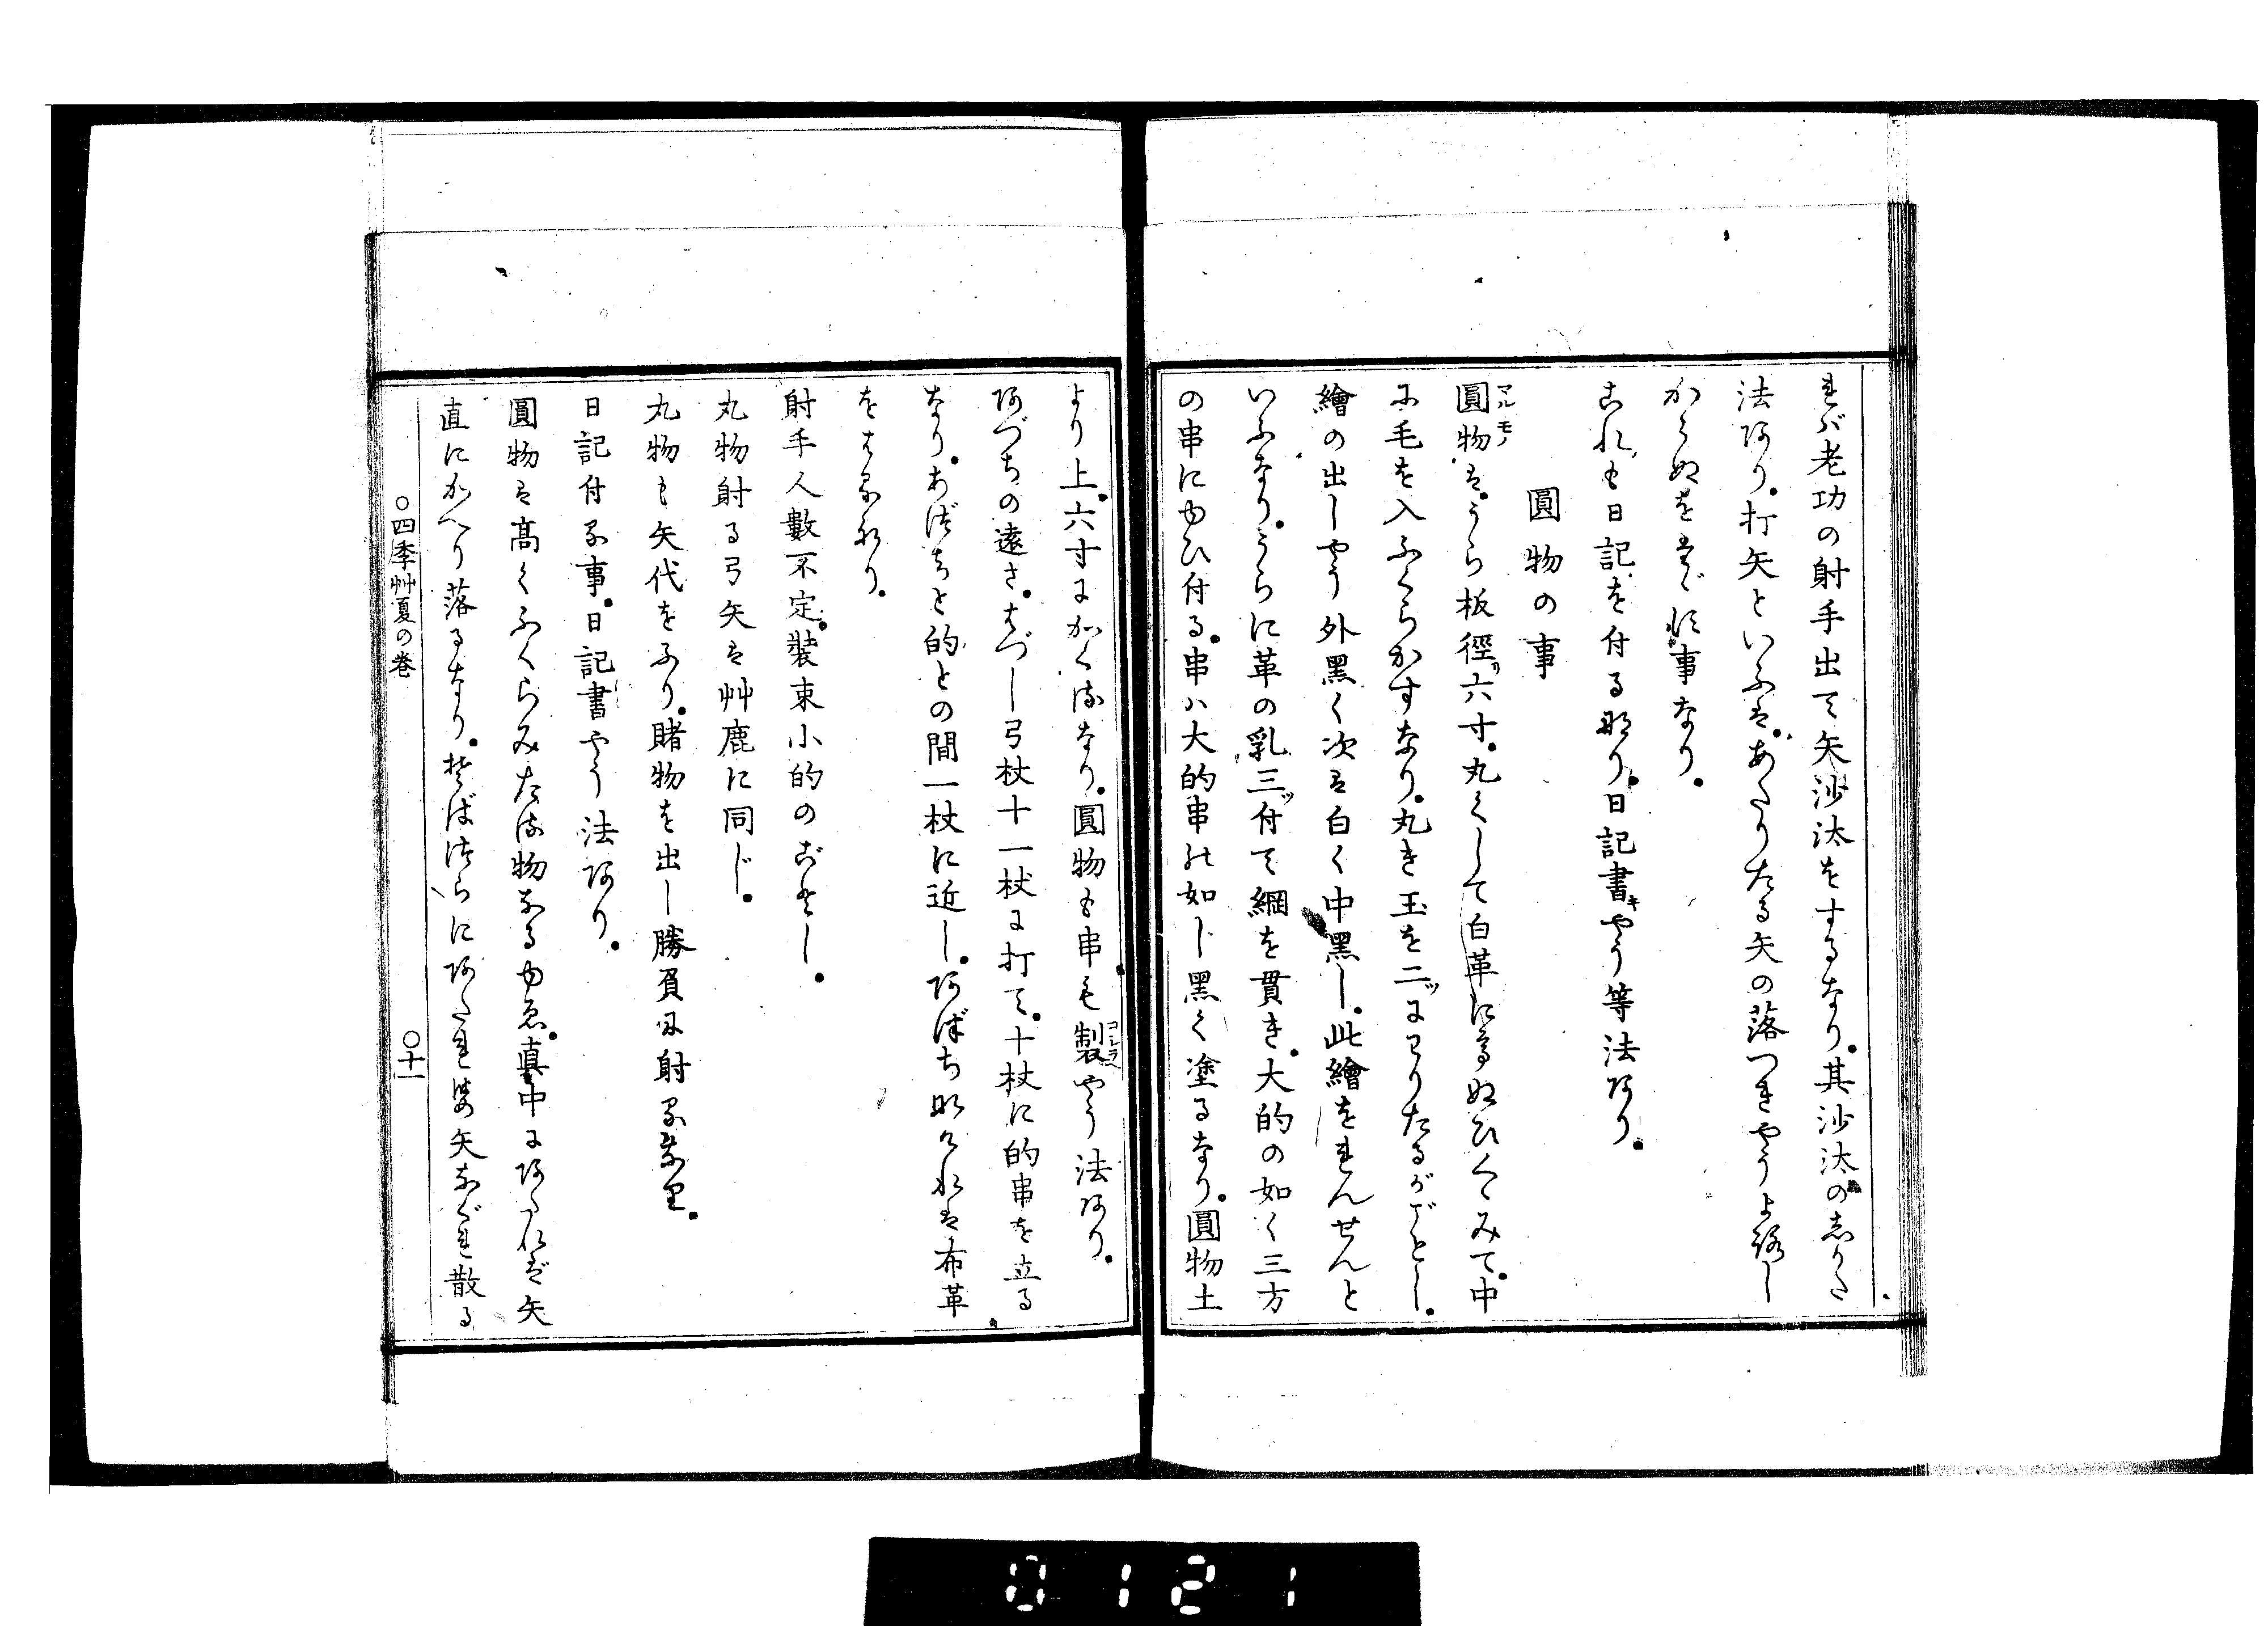 れば老功の射手出て矢沙汰をするなり。其沙汰のしかた
法あり。打矢といふは。あたりたる矢の落つきやうよろし
からぬをまぎれ事なり。
これも日記を付るなり。日記書キやう等法あり。
圓物の事
圓物マルモノは。うら板徑リ六寸。丸くして白革にてぬひくゝみて。中
に毛を入ふくらかすなり。丸き玉を二ツにわりたるがごとし。
繪の出しやう外黑く次は白く中黑し。此繪をれんせんと
いふなり。うらに革の乳三ツ付て綱を貫き。大的の如く三方
の串にゆひ付る。串ハ大的串の如し黑く塗るなり。圓物土
より上。六寸にかくるなり。圓物も串も製コシラヘやう法あり。
あづちの遠さ。はづし弓杖十一杖に打て。十杖に的串を立る
なり。あづちと的との間一杖に近し。あづちなければ布革
をはるなり。
射手人數不定。裝束小的のごとし。
丸物射る弓矢は艸鹿に同じ。
丸物も矢代をふり。賭物を出し勝負に射るなり。
日記付る事。日記書やう法あり。
圓物は高くふくらみたる物なるゆゑ。真中にあたれば矢
直にかへり落るなり。そばづらにあたれば矢なぐれ散る
○四季艸夏の卷
○十一
0121